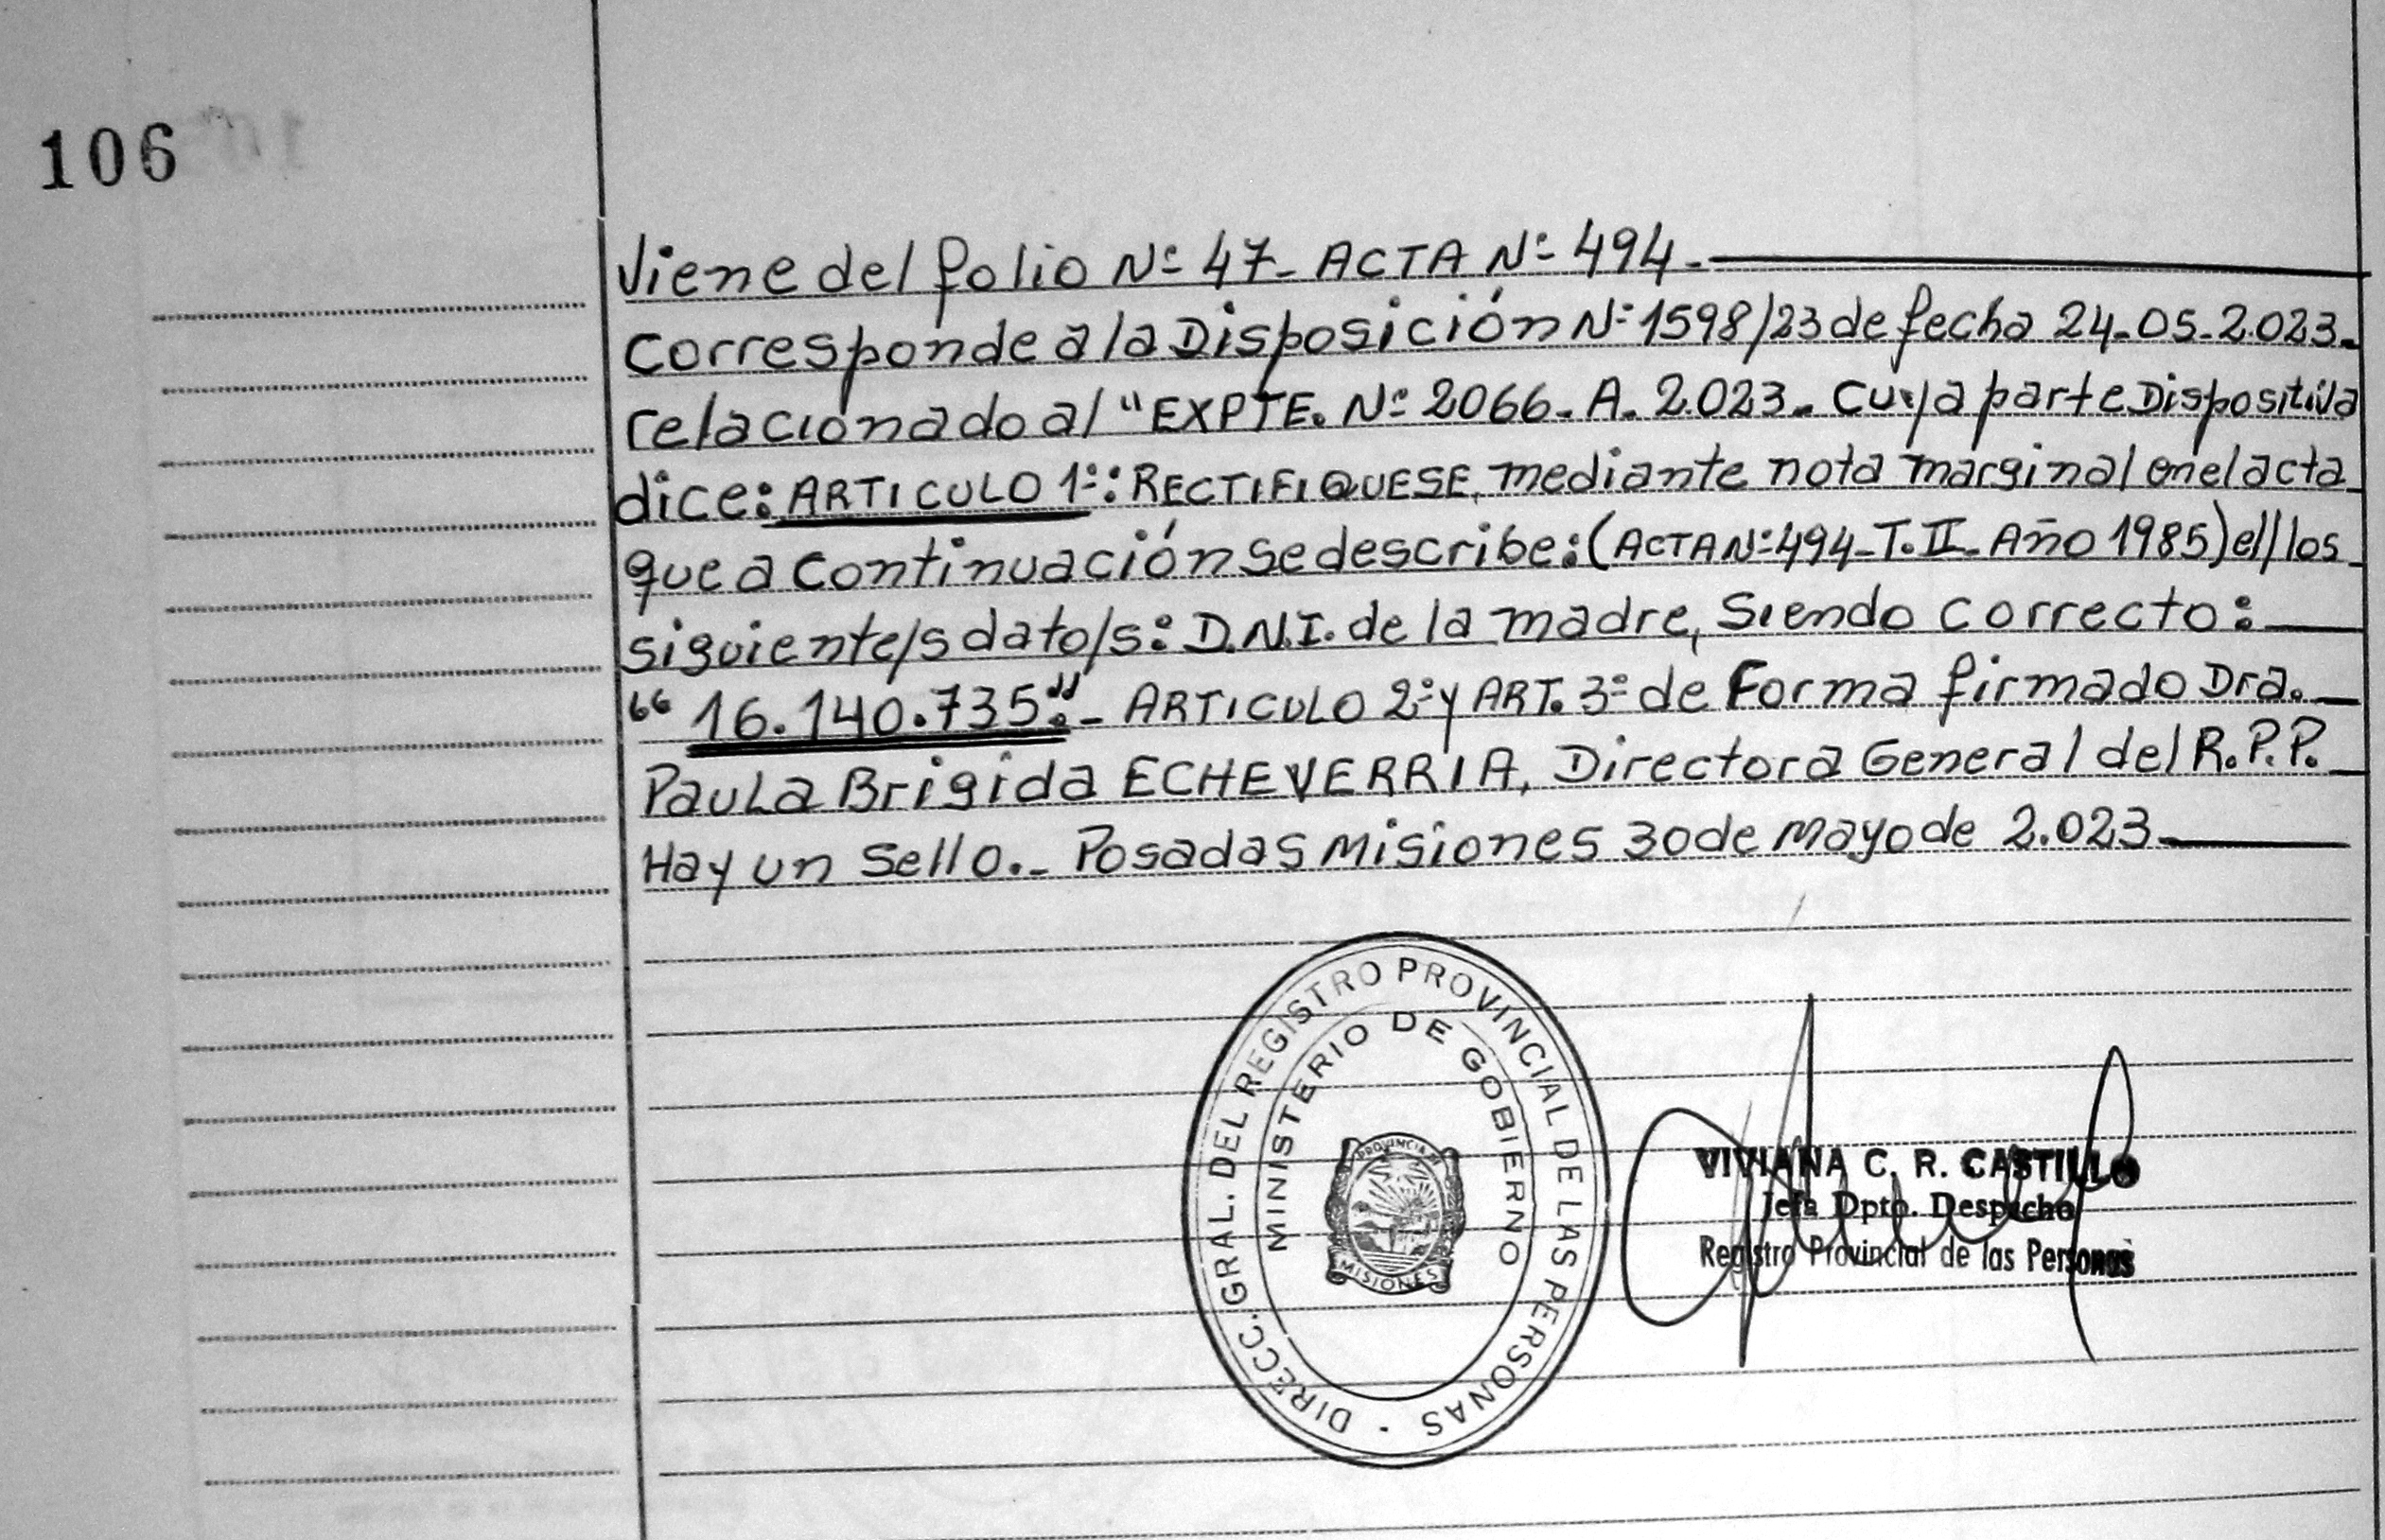 106
Viene del folio Nº 47- ACTA Nº 494.-
Corresponde a la Disposición Nº 1598/23 de fecha 24-05-2.023.
relacionado al "EXPTE. Nº 2066-A-2.023. Cuya parte Dispositiva
dice: ARTICULO 1º: RECTIFIQUESE, mediante nota marginal en el acta
que a continuación se describe: (ACTA Nº 494-T.II-Año 1985) el/los
siguiente/s dato/s: D.N.I. de la madre, Siendo correcto:
"16.140.735".- ARTICULO 2º y ART. 3º de Forma firmado Dra.
Paula Brigida ECHEVERRIA, Directora General del R.P.P.
Hay un Sello.- Posadas Misiones 30 de Mayo de 2.023
DIRECC. GRAL. DEL REGISTRO PROVINCIAL DE LAS PERSONAS
MINISTERIO DE GOBIERNO
PROVINCIA DE
MISIONES
VIVIANA C. R. CASTILLO
Jefa Dpto. Despacho
Registro Provincial de las Personas